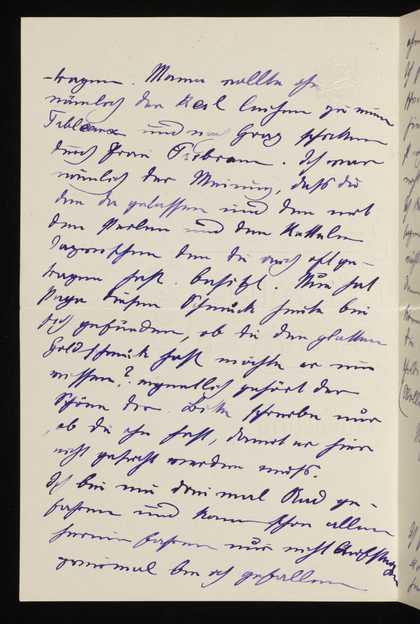 tragen. Mama wollte ihr
nämlich den Karl leihen zu einem
Tableaux und nach Graz schicken
durch Frau Pribram. Ich war
nämlich der Meinung, daß du
den da gelassen und den mit
den Perlen und den Ketteln
dazwischen den du auch oft ge-
tragen hast. besitzt. Nun hat
Papa diesen Schmuck heute bei
sich gefunden, ob du den glatten
Goldschmuck hast möchte er nun
wissen? eigentlich gehört der
Schöne dir. Bitte schreibe nur
ob du ihn hast, damit er hier
nicht gesucht werden muß.
Ich bin nun drei mal Rad ge-
fahren und kann schon allein
herum fahren nur nicht Aufsteigen
zweimal bin ich gefallen